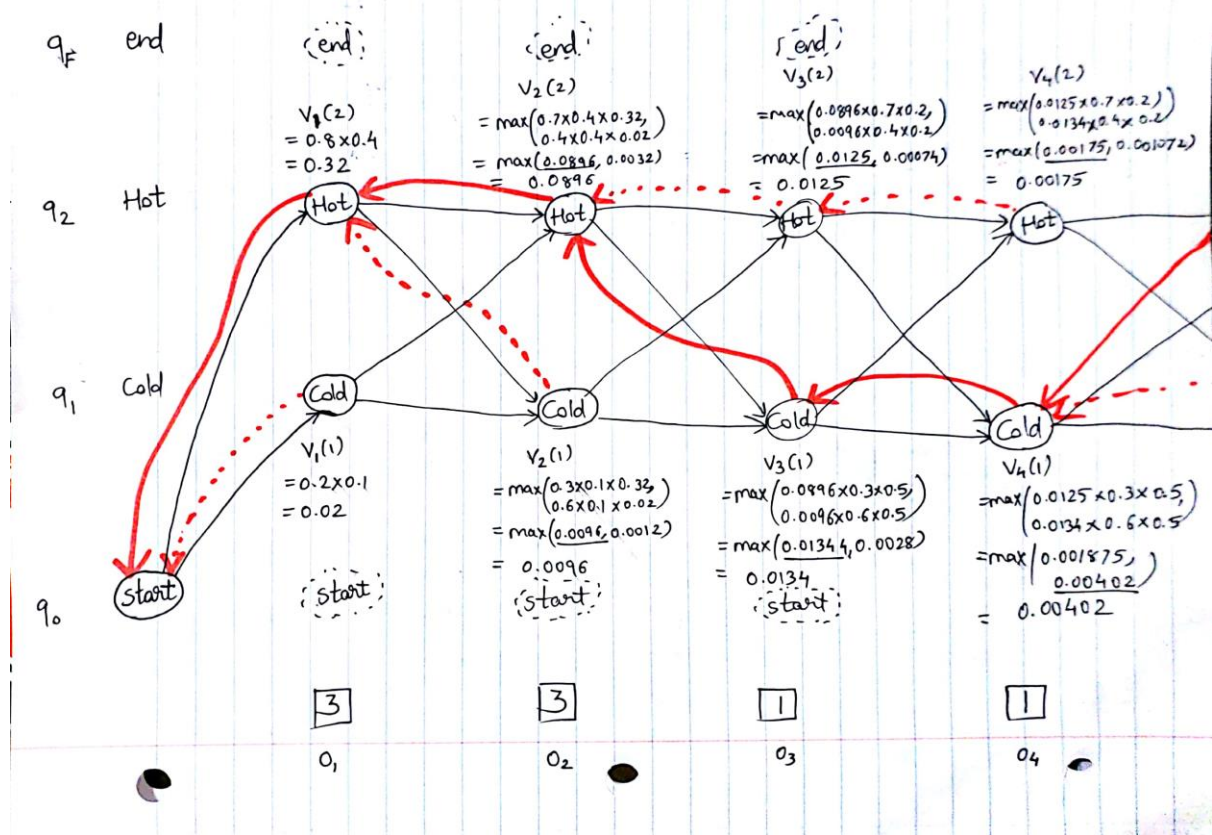 qF end (end) (end) (end)
V1(2)
= 0.8×0.4
= 0.32
V2(2)
= max(0.7×0.4×0.32,
0.4×0.4×0.02)
= max(0.0896, 0.0032)
= 0.0896
V3(2)
=max(0.0896×0.7×0.2,
0.0096×0.4×0.2)
=max(0.0125, 0.00074)
= 0.0125
V4(2)
=max(0.0125×0.7×0.2)
0.0134×0.4×0.2)
=max(0.00175, 0.001072)
= 0.00175
q2 Hot Hot Hot Hot Hot
q1 Cold Cold Cold Cold Cold
V1(1)
=0.2×0.1
= 0.02
V2(1)
=max(0.3×0.1×0.32,
0.6×0.1×0.02)
=max(0.0096, 0.0012)
= 0.0096
V3(1)
=max(0.0896×0.3×0.5,
0.0096×0.6×0.5)
=max(0.01344, 0.0028)
= 0.0134
V4(1)
=max(0.0125×0.3×0.5,
0.0134×0.6×0.5)
=max(0.001875,
0.00402)
= 0.00402
q0 Start (start) (start) (start)
3 3 1 1
O1 O2 O3 O4